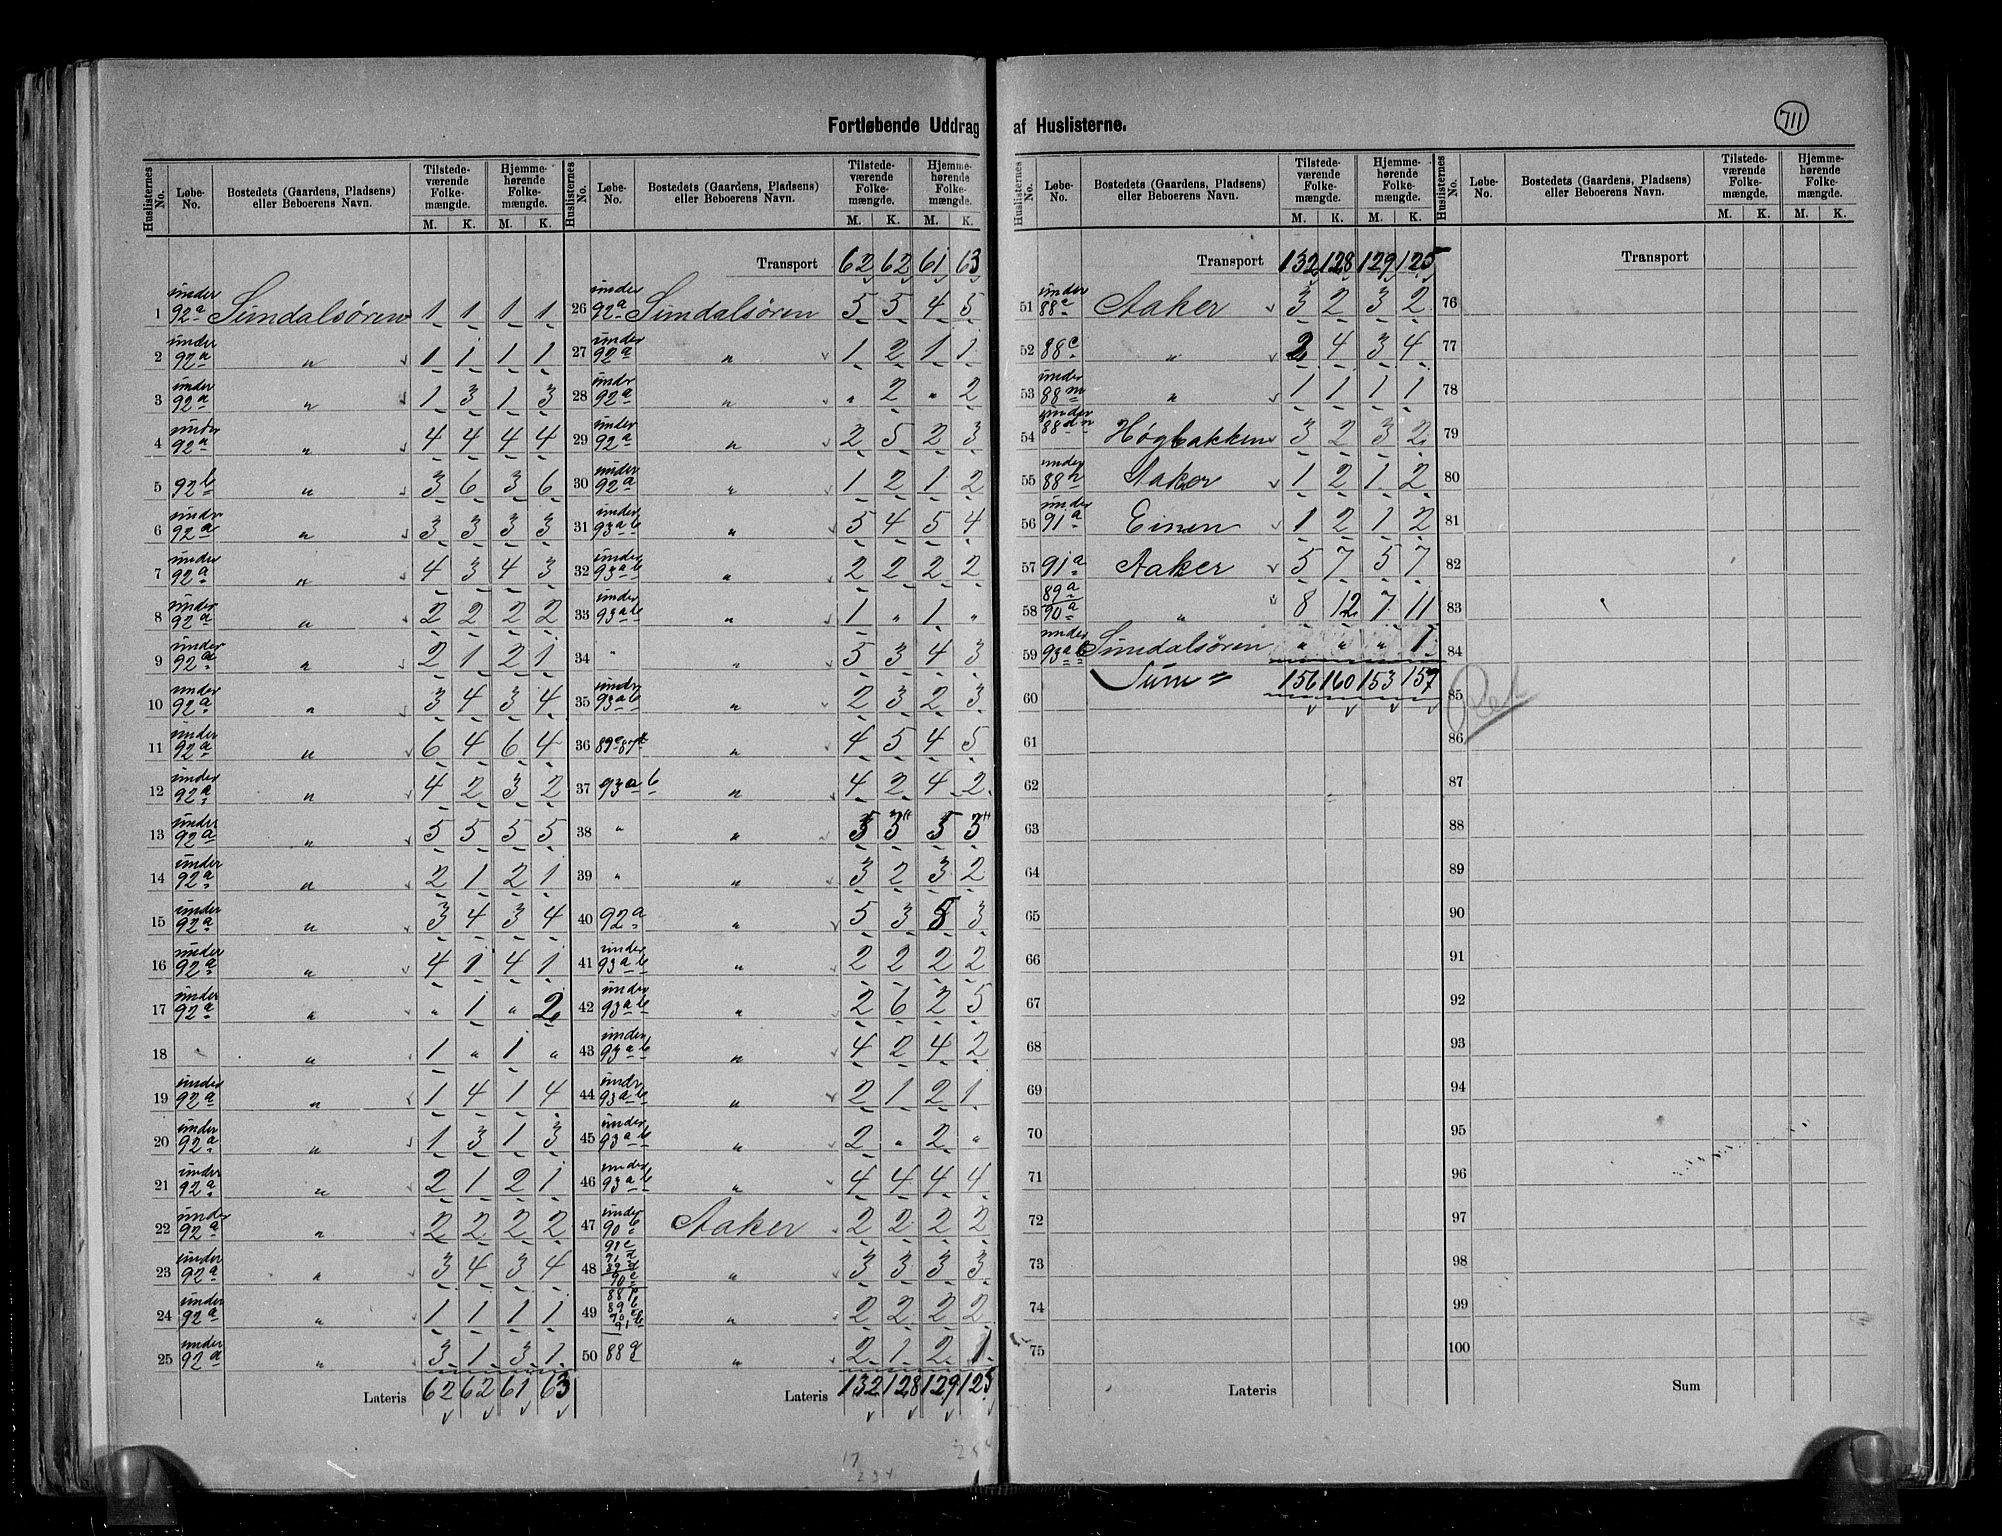 Fortløbende Uddrag af Huslisterne.
711
Huslisternes No. | Løbe-No. | Bostedets (Gaardens, Pladsens) eller Beboerens Navn. | Tilstedeværende Folkemængde. M. K. | Hjemmehørende Folkemængde. M. K.
1 under 92a Sundalsören 1 1 1 1
2 under 92a " 1 1 1 1
3 under 92a " 1 3 1 3
4 under 92a " 4 4 4 4
5 92b " 3 6 3 6
6 under 92a " 3 3 3 3
7 under 92a " 4 3 4 3
8 under 92a " 2 2 2 2
9 under 92a " 2 1 2 1
10 under 92a " 3 4 3 4
11 under 92a " 6 4 6 4
12 under 92a " 4 2 3 2
13 under 92a " 5 5 5 5
14 under 92a " 2 1 2 1
15 under 92a " 3 4 3 4
16 under 92a " 4 1 4 1
17 under 92a " " 1 " 2
18 " 1 " 1 "
19 under 92a " 1 4 1 4
20 under 92a " 1 3 1 3
21 under 92a " 2 1 2 1
22 under 92a " 2 2 2 2
23 under 92a " 3 4 3 4
24 under 92a " 1 1 1 1
25 under 92a " 3 1 3 1
Lateris 62 62 61 63
Huslisternes No. | Løbe-No. | Bostedets (Gaardens, Pladsens) eller Beboerens Navn. | Tilstedeværende Folkemængde. M. K. | Hjemmehørende Folkemængde. M. K.
Transport 62 62 61 63
26 under 92a Sundalsören 5 5 4 5
27 under 92a " 1 2 1 1
28 under 92a " " 2 " 2
29 under 92a " 2 5 2 3
30 under 92a " 1 2 1 2
31 under 93ab " 5 4 5 4
32 under 93ab " 2 2 2 2
33 under 93ab " 1 " 1 "
34 " " 5 3 4 3
35 under 93ab " 2 3 2 3
36 " 4 5 4 5
37 93ab " 4 2 4 2
38 " "
39 " " 3 2 3 2
40 92a " 5 3 5 3
41 under 93ab " 2 2 2 2
42 under 93ab " 2 6 2 5
43 under 93ab " 4 2 4 2
44 under 93ab " 2 1 2 1
45 under 93ab " 2 " 2 "
46 under 93ab " 4 4 4 4
47 under 90b Aaker 2 2 2 2
48 " 3 3 3 3
49 " 2 2 2 2
50 88g " 2 1 2 1
Lateris 132 128 129 125
17
254
Huslisternes No. | Løbe-No. | Bostedets (Gaardens, Pladsens) eller Beboerens Navn. | Tilstedeværende Folkemængde. M. K. | Hjemmehørende Folkemængde. M. K.
Transport 132 128 129 125
51 under 88c Aaker 3 2 3 2
52 88c " 2 4 3 4
53 under 88m " 1 1 1 1
54 under Høgbakken 3 2 3 2
55 under 88h Aaker 1 2 1 2
56 under 91a Einen 1 2 1 2
57 91a Aaker 5 7 5 7
58 89a 90a " 8 12 7 11
59 under 93ab Sundalsören " " " 1
60 Sum = 156 160 153 157
61
62
63
64
65
66
67
68
69
70
71
72
73
74
75
Lateris
Huslisternes No. | Løbe-No. | Bostedets (Gaardens, Pladsens) eller Beboerens Navn. | Tilstedeværende Folkemængde. M. K. | Hjemmehørende Folkemængde. M. K.
Transport
76
77
78
79
80
81
82
83
84
85
86
87
88
89
90
91
92
93
94
95
96
97
98
99
100
Sum